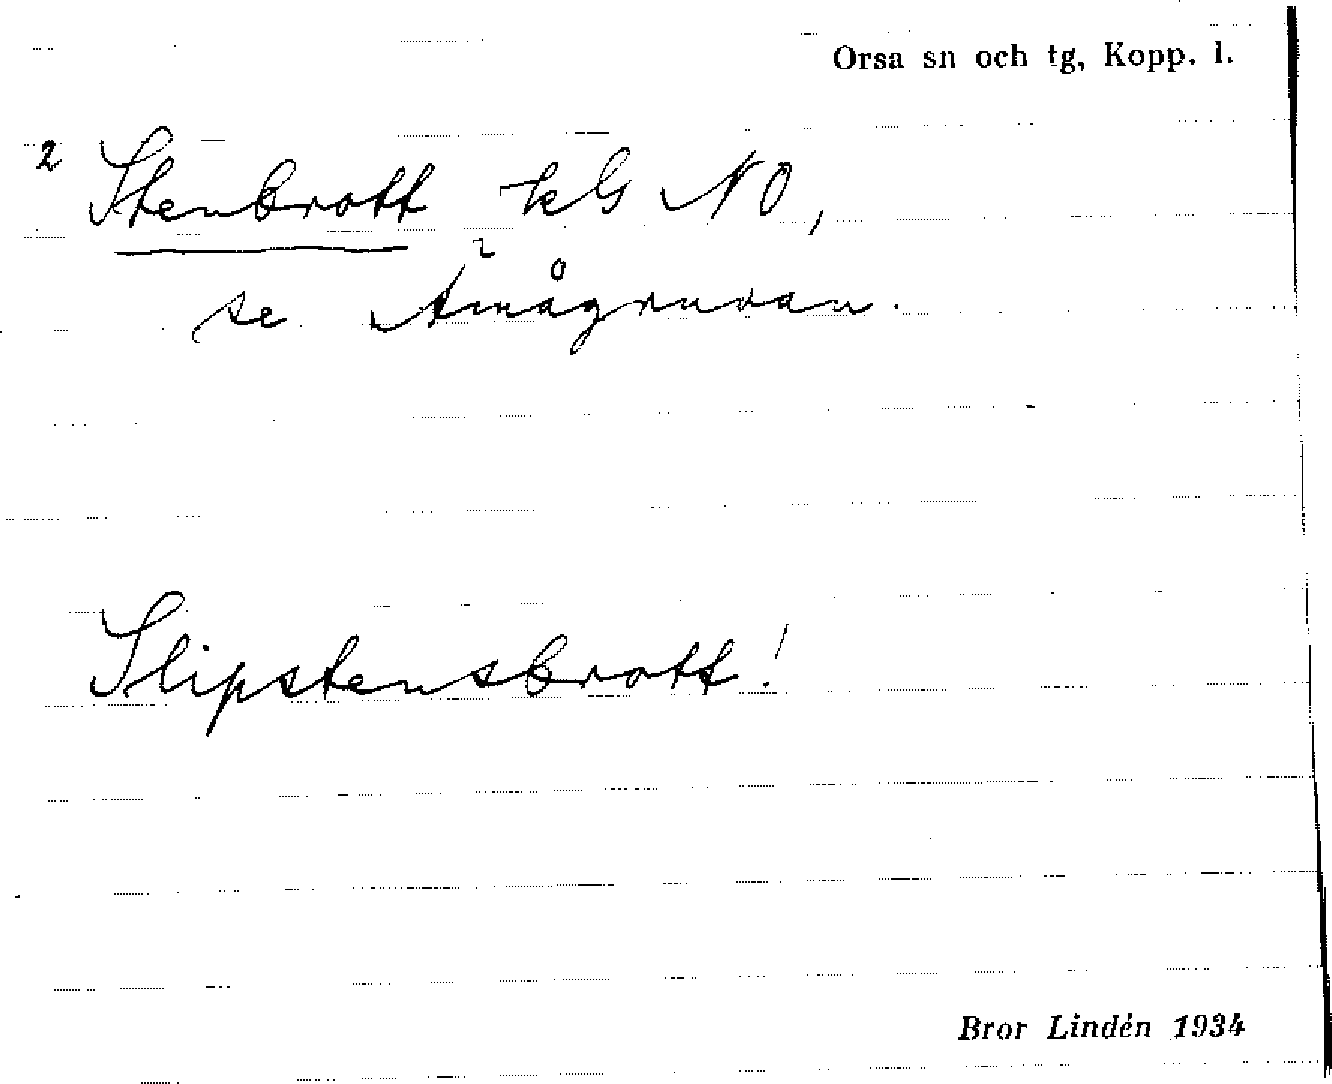 Orsa sn och tg, Kopp. l.
2 Stenbrott kG NO,
se Ämågruvan.
Slipstensbrott!
Bror Lindén 1934